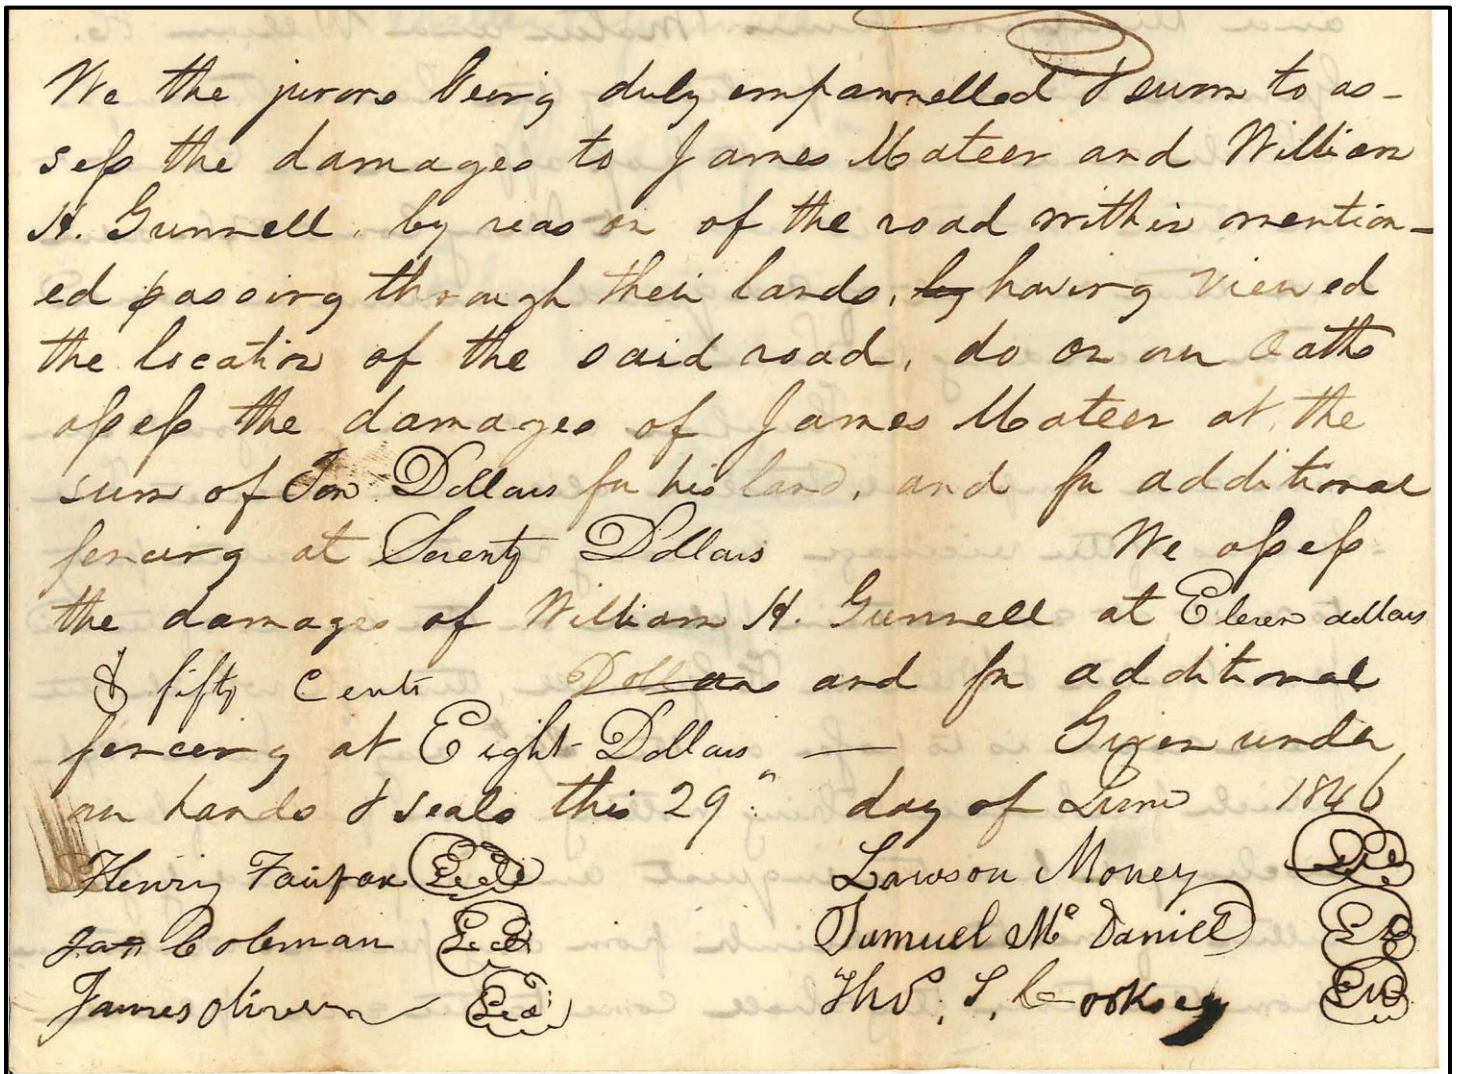 We the jurors being duly empannelled & sworn to as-
sess the damages to James Mateer and William
H. Gunnell, by reason of the road within mention-
ed passing through their lands, by having viewed
the location of the said road, do on our oaths
assess the damages of James Mateer at the
sum of Ten Dollars for his land, and for additional
fencing at Seventy Dollars We assess
the damages of William H. Gunnell at Eleven dollars
& fifty Cents Dollars and for additional
fencing at Eight Dollars — Given under
our hands & seals this 29" day of June 1846
Henry Fairfax Seal Lawson Money Seal
Jas Coleman Seal Samuel Mc Daniel Seal
James Oliver Seal Thos. S. Cooksey Seal